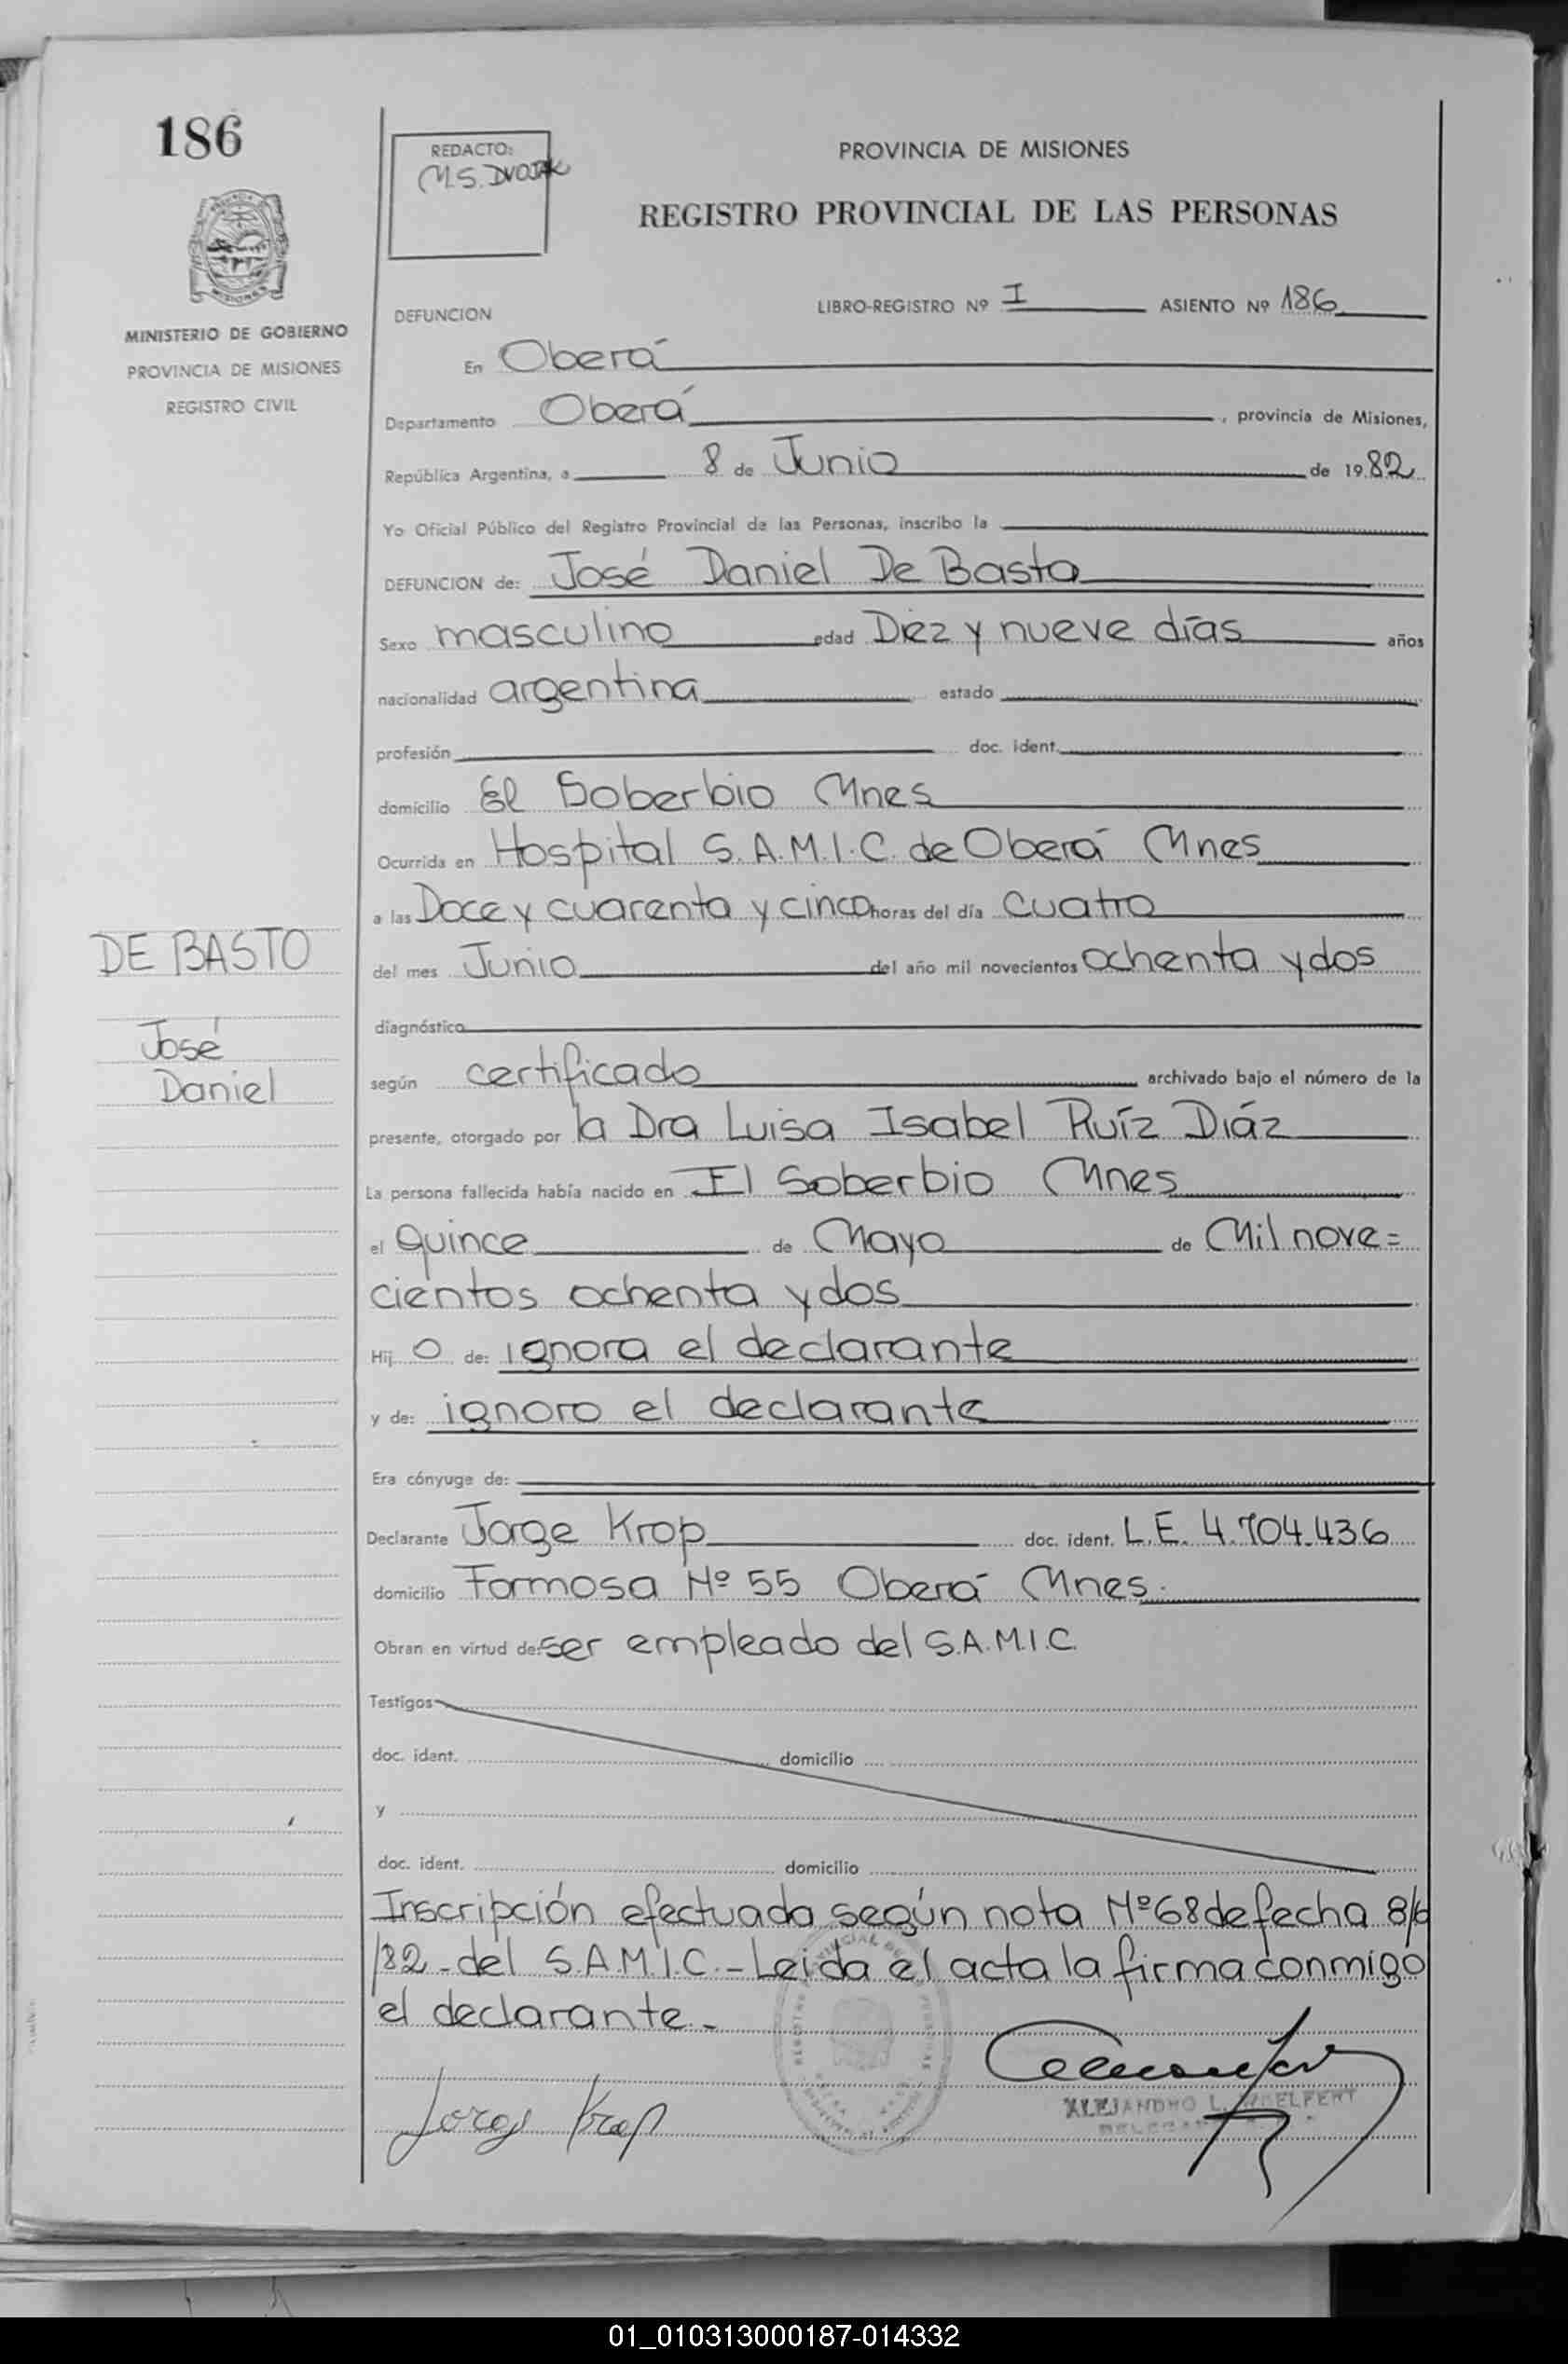 186
REDACTO:
M.S. DVOJAK
PROVINCIA DE MISIONES
REGISTRO PROVINCIAL DE LAS PERSONAS
MISIONES
MINISTERIO DE GOBIERNO
PROVINCIA DE MISIONES
REGISTRO CIVIL
DEFUNCION
LIBRO-REGISTRO Nº I ASIENTO Nº 186
En Oberá
Departamento Oberá, provincia de Misiones,
República Argentina, a 8 de Junio de 1982
Yo Oficial Público del Registro Provincial de las Personas, inscribo la
DEFUNCION de: José Daniel De Basto
Sexo masculino edad Diez y nueve días años
nacionalidad argentina estado
profesión doc. ident.
domicilio El Soberbio Mnes
Ocurrida en Hospital S.A.M.I.C. de Oberá Mnes
a las Doce y cuarenta y cinco horas del día cuatro
DE BASTO
del mes Junio del año mil novecientos ochenta y dos
diagnóstico
José
Daniel
según certificado archivado bajo el número de la
presente, otorgado por la Dra Luisa Isabel Ruíz Diáz
La persona fallecida había nacido en El Soberbio Mnes
el Quince de Mayo de Mil nove=
cientos ochenta y dos
Hij o de: ignora el declarante
y de: ignora el declarante
Era cónyuge de:
Declarante Jorge Krop doc. ident. L.E. 4.704.436
domicilio Formosa Nº 55 Oberá Mnes.
Obran en virtud de: ser empleado del S.A.M.I.C.
Testigos
doc. ident. domicilio
y
doc. ident. domicilio
Inscripción efectuada según nota Nº 68 de fecha 8/6
/82 - del S.A.M.I.C. - Leida el acta la firma conmigo
el declarante. -
Jorge Krop
ALEJANDRO L. WOELFERT
01_010313000187-014332